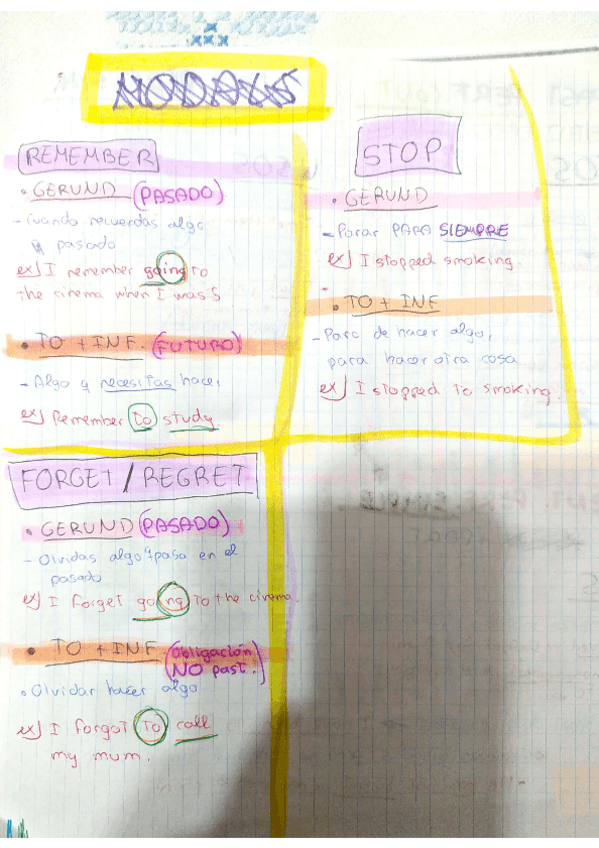 MODALS
REMEMBER
• GERUND (PASADO)
- Cuando recuerdas algo
pasado
ex) I remember going to
the cinema when I was 5
• TO + INF. (FUTURO)
- Algo q necesitas hacer
ex) Remember to study
STOP
• GERUND
- Parar PARA SIEMPRE
ex) I stopped smoking
• TO + INF
- Paro de hacer algo,
para hacer otra cosa
ex) I stopped to smoking.
FORGET / REGRET
• GERUND (PASADO)
- Olvidas algo q pasa en el
pasado
ex) I forget going to the cinema.
• TO + INF. (Obligación
NO past.)
• Olvidar hacer algo
ex) I forgot to call
my mum.